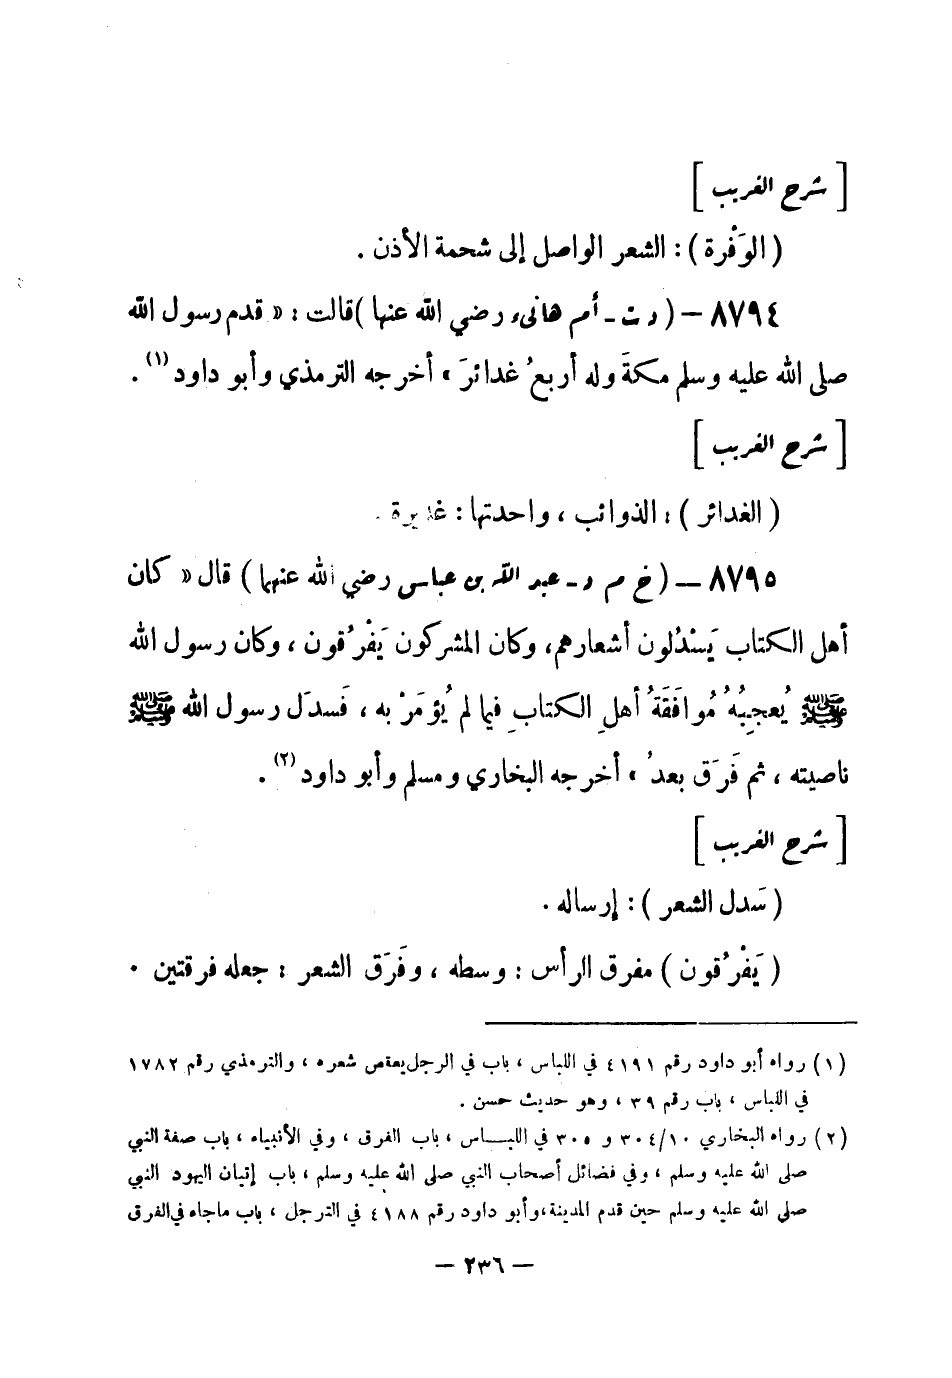 [ شرح الغريب ]
( الوَفْرة ) : الشعر الواصل إلى شحمة الأذن .
٨٧٩٤ – ( د ت - أم هانىء رضي الله عنها ) قالت : « قدم رسول الله
صلى الله عليه وسلم مكةَ وله أربعُ غدائرَ » أخرجه الترمذي وأبو داود (١) .
[ شرح الغريب ]
( الغدائر ) : الذوائب ، واحدتها : غديرة .
٨٧٩٥ – ( خ م د - عبد الله بن عباس رضي الله عنهما ) قال « كان
أهل الكتاب يَسْدُلون أشعارهم، وكان المشركون يَفْرُقون ، وكان رسول الله
ﷺ يُعجِبُهُ مُوافَقَةُ أهلِ الكتابِ فيما لم يُؤمَرْ به ، فَسدَل رسول الله ﷺ
ناصيته ، ثم فَرَق بعدُ » أخرجه البخاري ومسلم وأبو داود (٢) .
[ شرح الغريب ]
( سَدل الشعر ) : إرساله .
( يَفْرُقون ) مفرق الرأس : وسطه ، وفَرَق الشعر : جعله فرقتين .
(١) رواه أبو داود رقم ٤١٩١ في اللباس ، باب في الرجل يعقص شعره ، والترمذي رقم ١٧٨٢
في اللباس ، باب رقم ٣٩ ، وهو حديث حسن .
(٢) رواه البخاري ٣٠٤/١٠ و ٣٠٥ في اللبـــاس ، باب الفرق ، وفي الأنبياء ، باب صفة النبي
صلى الله عليه وسلم ، وفي فضائل أصحاب النبي صلى الله عليه وسلم ، باب إتيان اليهود النبي
صلى الله عليه وسلم حين قدم المدينة ،وأبو داود رقم ٤١٨٨ في الترجل ، باب ماجاء في الفرق
– ٢٣٦ –